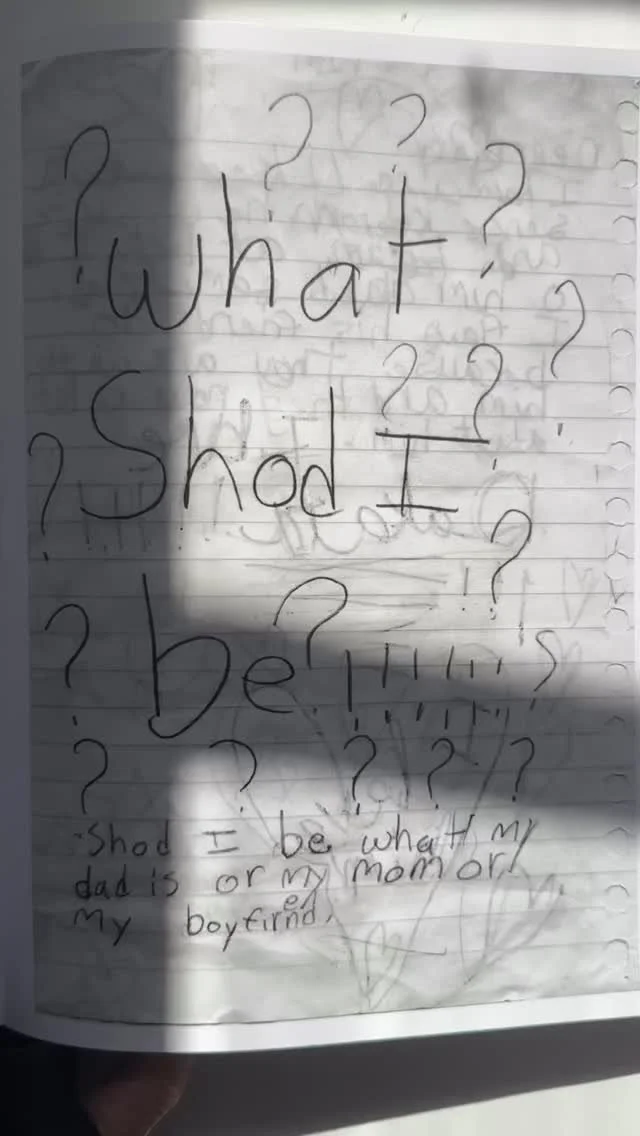 ? ? ? ?
what ?
? ?
? Shod I
?
? be? !!!!!! ?
? ? ? ? ?
Shod I be what my
dad is or my mom or
my boyfirend.